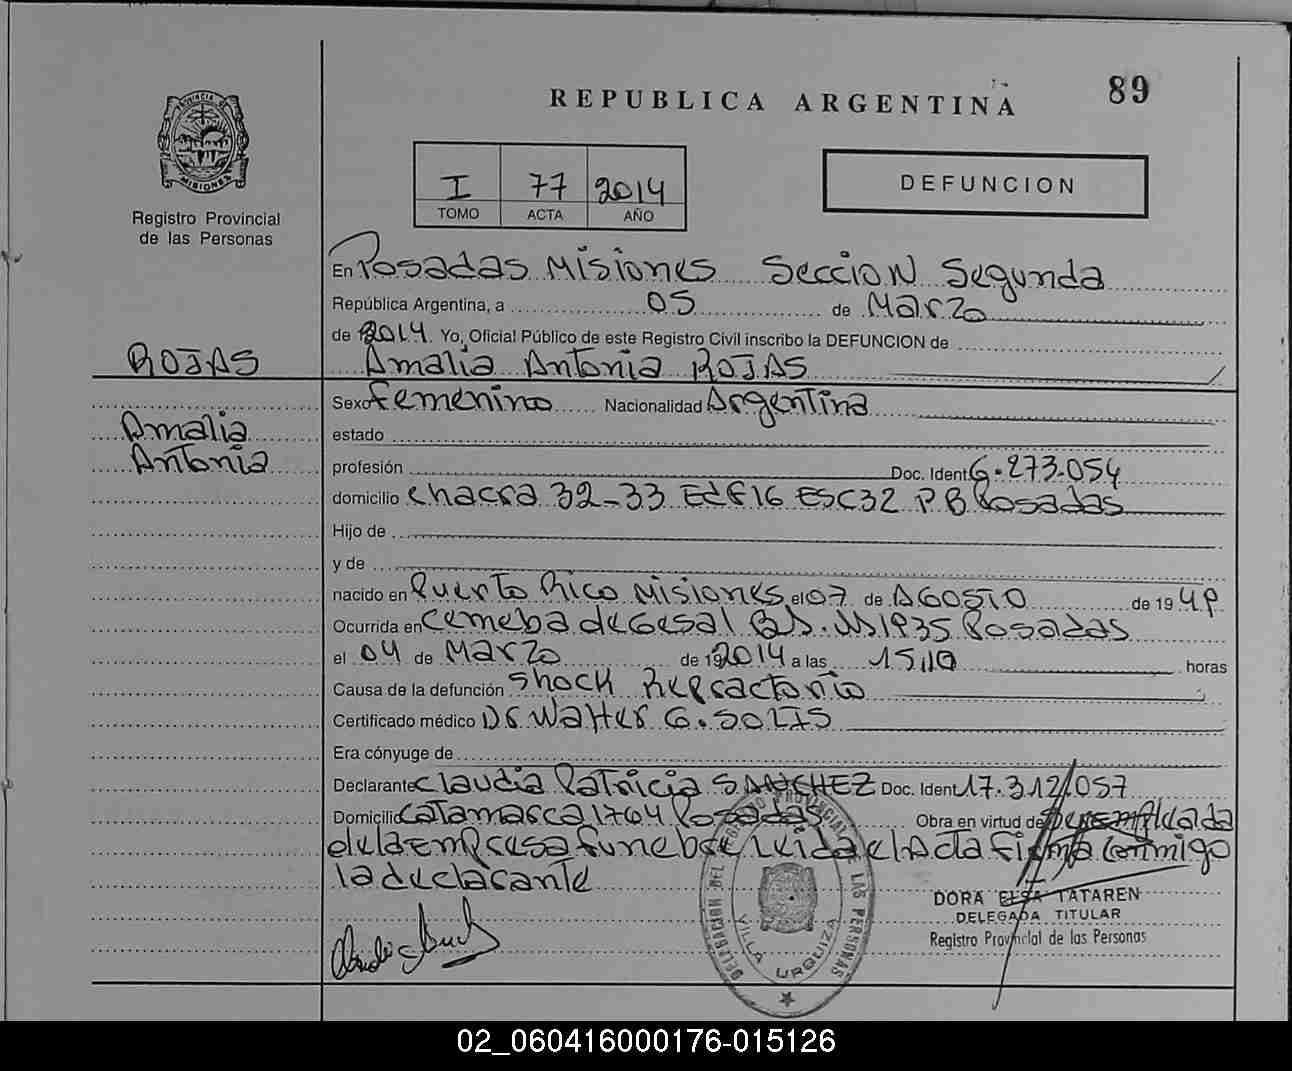 89
REPUBLICA ARGENTINA
PROVINCIA DE
MISIONES
Registro Provincial
de las Personas
I 77 2014
TOMO ACTA AÑO
DEFUNCION
En Posadas Misiones Seccion Segunda
República Argentina, a 05 de Marzo
de 2014 Yo, Oficial Público de este Registro Civil inscribo la DEFUNCION de
ROJAS
Amalia Antonia ROJAS
Sexo femenino Nacionalidad Argentina
Amalia
Antonia
estado
profesión Doc. Ident. 6.273.054
domicilio chacra 32-33 Edf16 ESC32 P.B Posadas
Hijo de
y de
nacido en Puerto Rico Misiones el 07 de AGOSTO de 1949
Ocurrida en 1935 Posadas
el 04 de Marzo de 192014 a las 15,10 horas
Causa de la defunción Shock Refractorio
Certificado médico Dr Walter G. SOLIS
Era cónyuge de
Declarante Claudia Patricia SANCHEZ Doc. Ident. 17.312.057
Domicilio Catamarca 1764 Posadas Obra en virtud de ser empleada
de la Empresa funebre Leida el Acta firma conmigo
la declarante
DORA ELSA TATAREN
DELEGADA TITULAR
Registro Provincial de las Personas
DELEGACION DEL REGISTRO PROVINCIAL DE LAS PERSONAS
VILLA URQUIZA
02_060416000176-015126